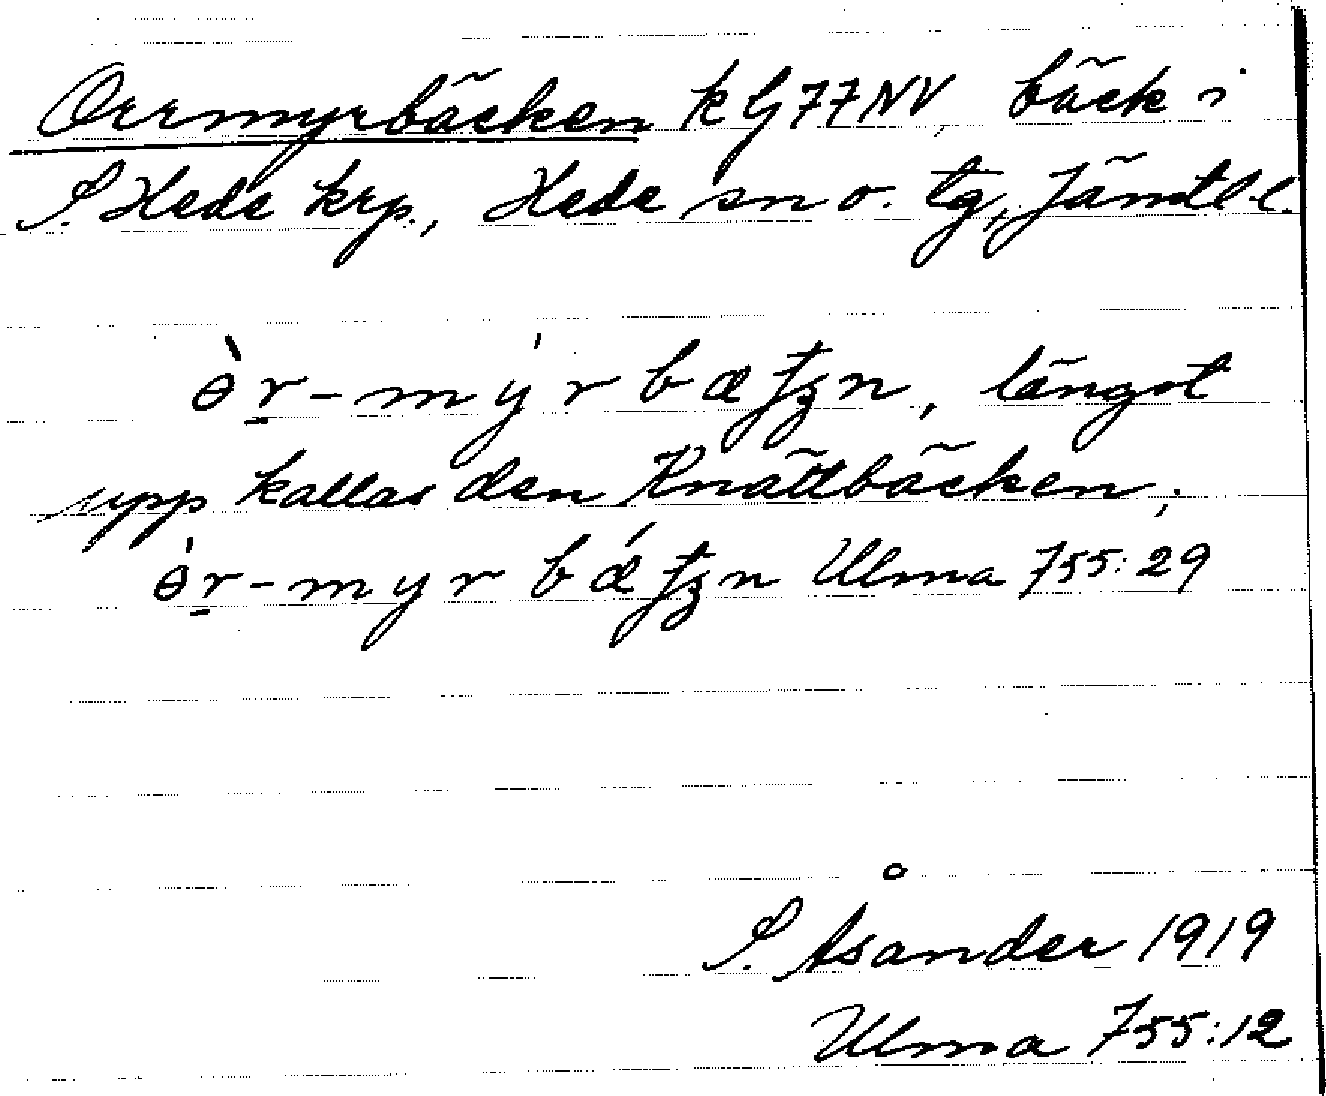 Orrmyrbäcken k G 77 NV bäck i
S. Hede krp., Hede sn o. tg, Jämtl.l.
ɵ̀r-mýrbæʈʒn, längst
upp kallas den Knättbäcken;
ɵ̀r-myrbǽʈʒn Ulma 755:29
S. Åsander 1919
Ulma 755:12